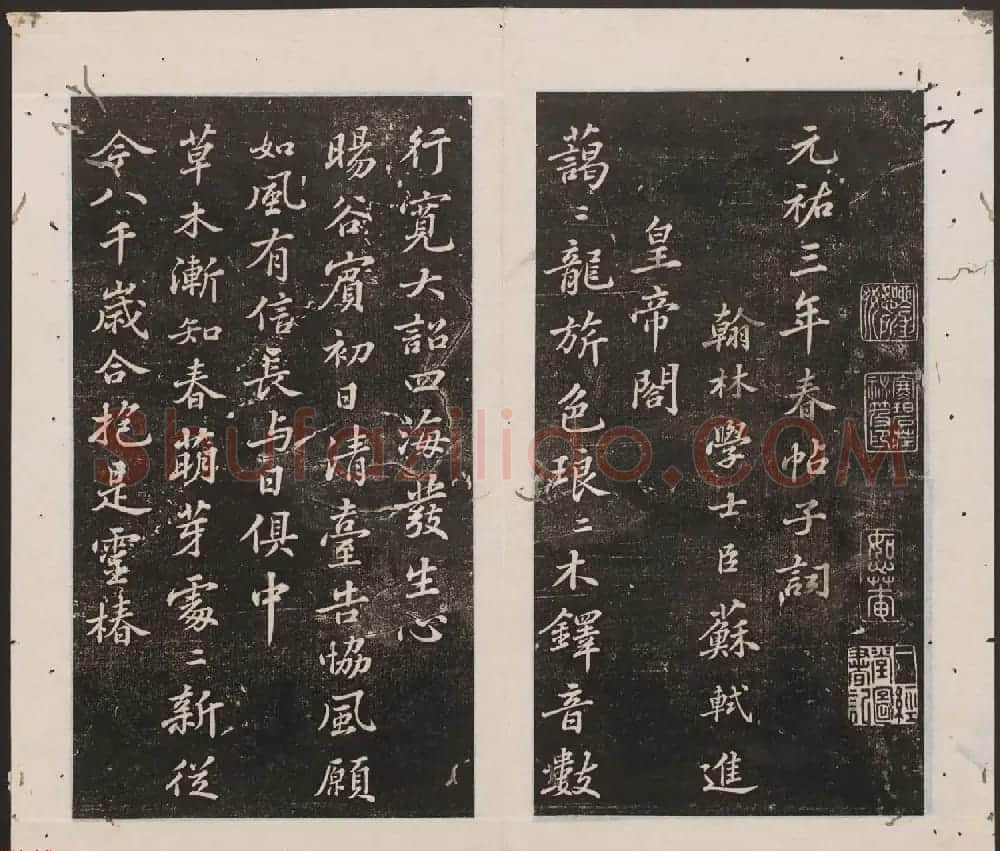 元祐三年春帖子詞
翰林學士臣蘇軾進
皇帝閤
藹〻龍旂色琅〻木鐸音數
行寬大詔四海發生心
暘谷賓初日清臺告協風願
如風有信長与日俱中
草木漸知春萌芽處〻新從
今八千歲合抱是靈椿
Shufazilido.COM